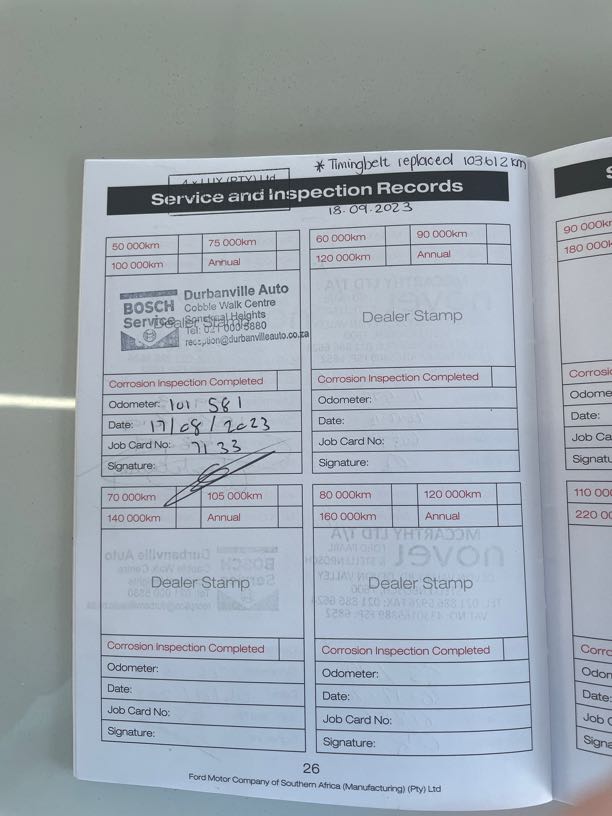 * Timingbelt replaced 103612 km
4 x LUX (PTY) Ltd
Service and Inspection Records
18.09.2023
50 000km 75 000km
100 000km Annual
BOSCH
Service
Durbanville Auto
Cobble Walk Centre
Sonstraal Heights
Tel: 021 000 3880
reception@durbanvilleauto.co.za
Dealer Stamp
Corrosion Inspection Completed
Odometer: 101 581
Date: 17/08/2023
Job Card No: 7133
Signature:
60 000km 90 000km
120 000km Annual
Dealer Stamp
Corrosion Inspection Completed
Odometer:
Date:
Job Card No:
Signature:
70 000km 105 000km
140 000km Annual
Dealer Stamp
Corrosion Inspection Completed
Odometer:
Date:
Job Card No:
Signature:
80 000km 120 000km
160 000km Annual
Dealer Stamp
Corrosion Inspection Completed
Odometer:
Date:
Job Card No:
Signature:
26
Ford Motor Company of Southern Africa (Manufacturing) (Pty) Ltd
90 000k
180 000
Date:
110 00
220 00
Date: